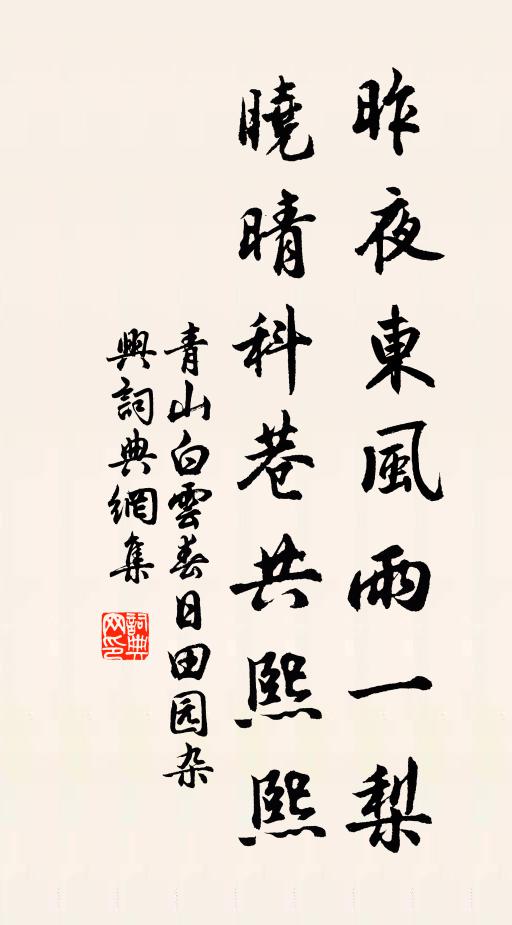 昨夜東風雨一梨
曉晴科巷共熙熙
青山白雲春日田园杂
興詞典網集
詞典网印